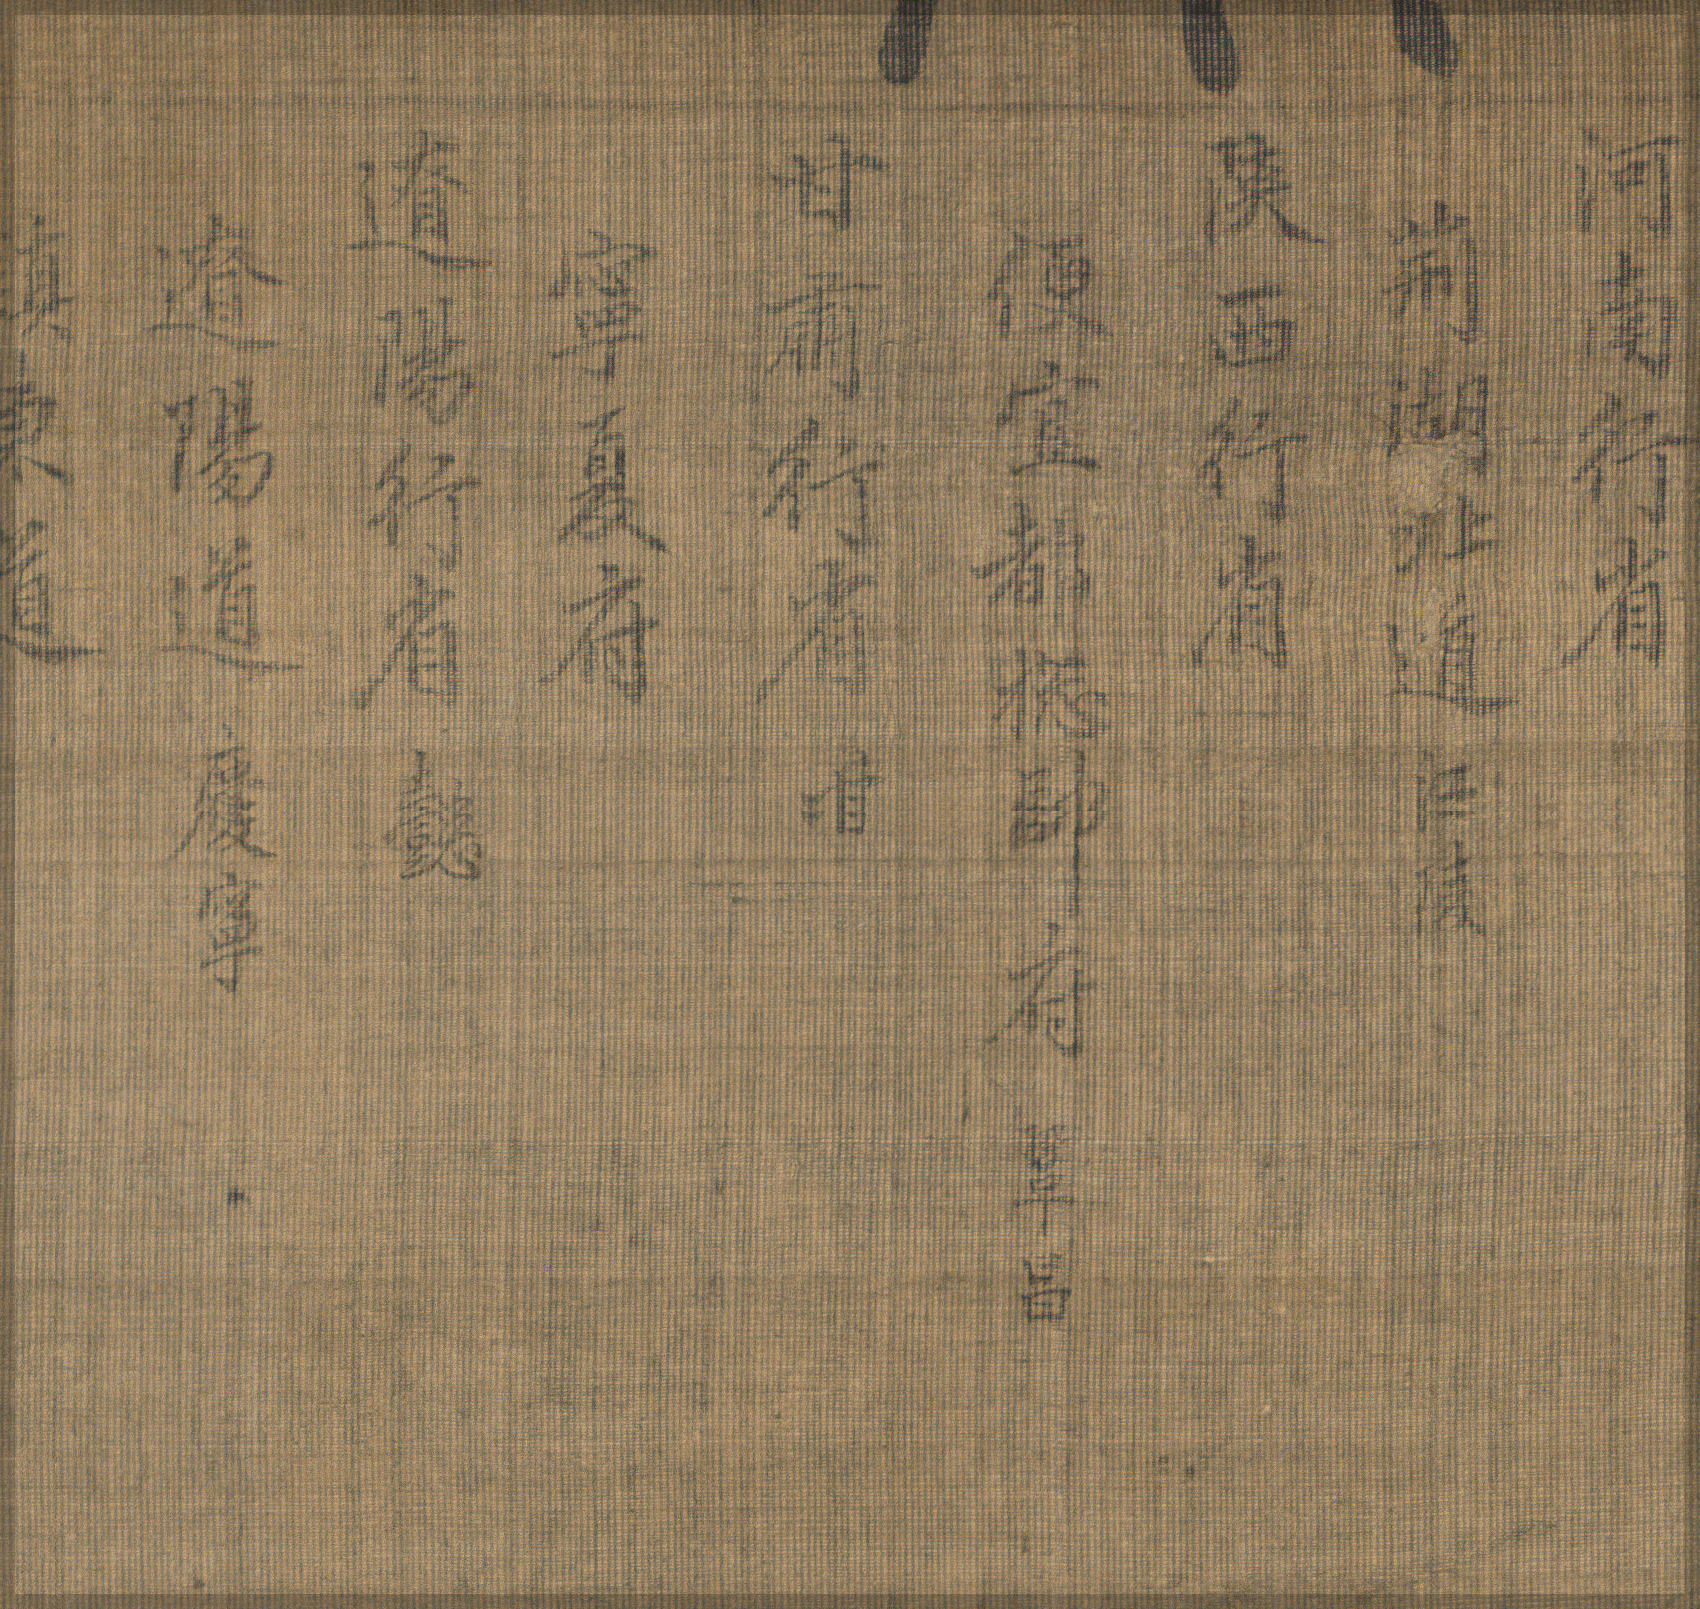 河南行省
荊湖北道 江陵
陝西行省
便宜都揔帥府 鞏昌
甘肅行省
寧夏府
遼陽行省 懿
遼陽道 慶寧
東道